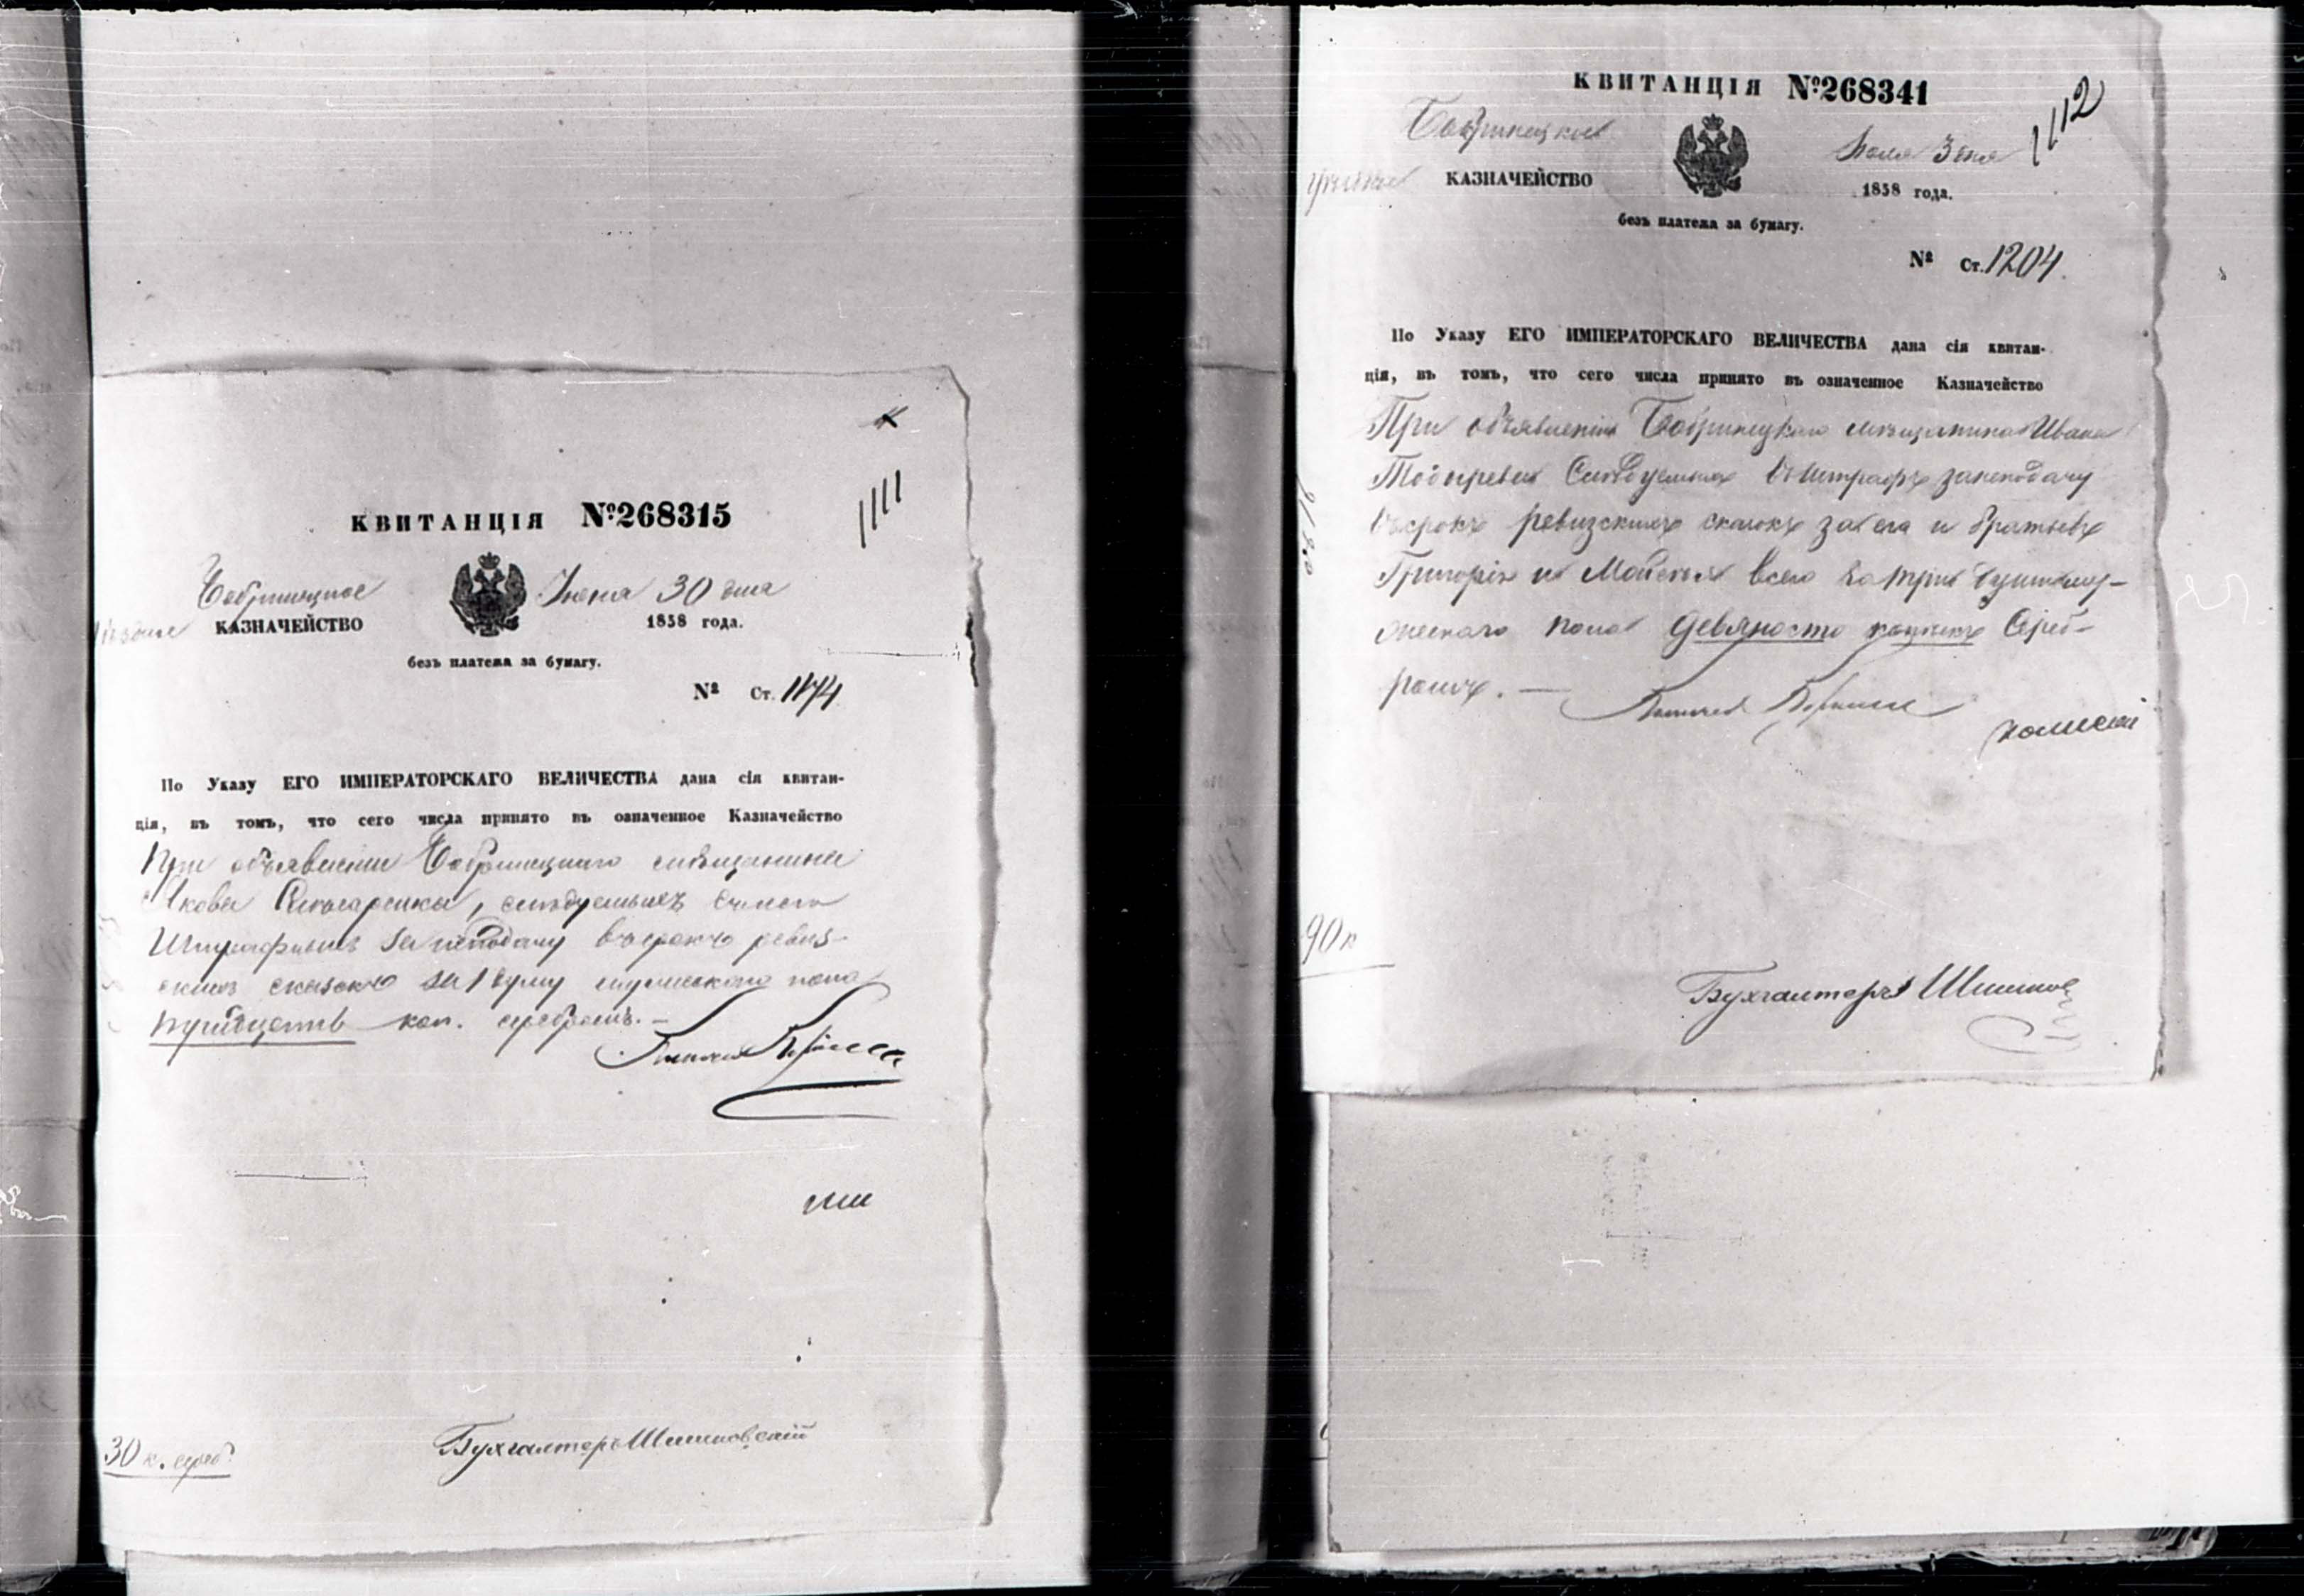 1111
КВИТАНЦІЯ №268315
Бобринецкое Іюня 30 дня
Уѣздное КАЗНАЧЕЙСТВО 1858 года.
безъ платежа за бумагу.
№ Ст. 1174
По Указу ЕГО ИМПЕРАТОРСКАГО ВЕЛИЧЕСТВА дана сія квитан-
ція, въ томъ, что сего числа принято въ означенное Казначейство
При объявленіи Бобринецкаго мѣщанина
Якова слѣдуемыхъ съ него
Штрафныхъ за неподачу въ срокъ ревиз-
скихъ сказокъ за 1 душу мужескаго пола
тридцать коп. серебромъ. —
30 к. сереб.
Бухгалтеръ Шишковскій
КВИТАНЦІЯ №268341
1112
Бобринецкое Іюля 3 дня
уѣздное КАЗНАЧЕЙСТВО 1858 года.
безъ платежа за бумагу.
№ Ст. 1204
По Указу ЕГО ИМПЕРАТОРСКАГО ВЕЛИЧЕСТВА дана сія квитан-
ція, въ томъ, что сего числа принято въ означенное Казначейство
При объявленіи Бобринецкаго мѣщанина Ивана
Слѣдуемыхъ въ штрафъ за неподачу
въ срокъ ревизскихъ сказокъ за его и братьевъ
Григорія и Моисея всего за три души муж-
ескаго пола девяносто копѣекъ Сереб-
ромъ. —
90 к
Бухгалтеръ